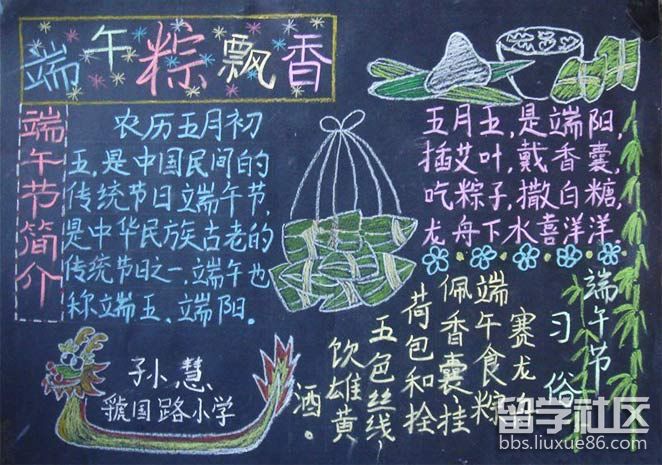 端午粽飘香
端午节简介
农历五月初
五，是中国民间的
传统节日端午节，
是中华民族古老的
传统节日之一，端午也
称端五、端阳。
五月五，是端阳，
插艾叶，戴香囊，
吃粽子，撒白糖，
龙舟下水喜洋洋
端午节
习俗
赛龙舟
端午食粽
佩香囊、挂
荷包和拴
五色丝线
饮雄黄
酒。
孙慧
虢国路小学
留学社区
bbs.liuxue86.com